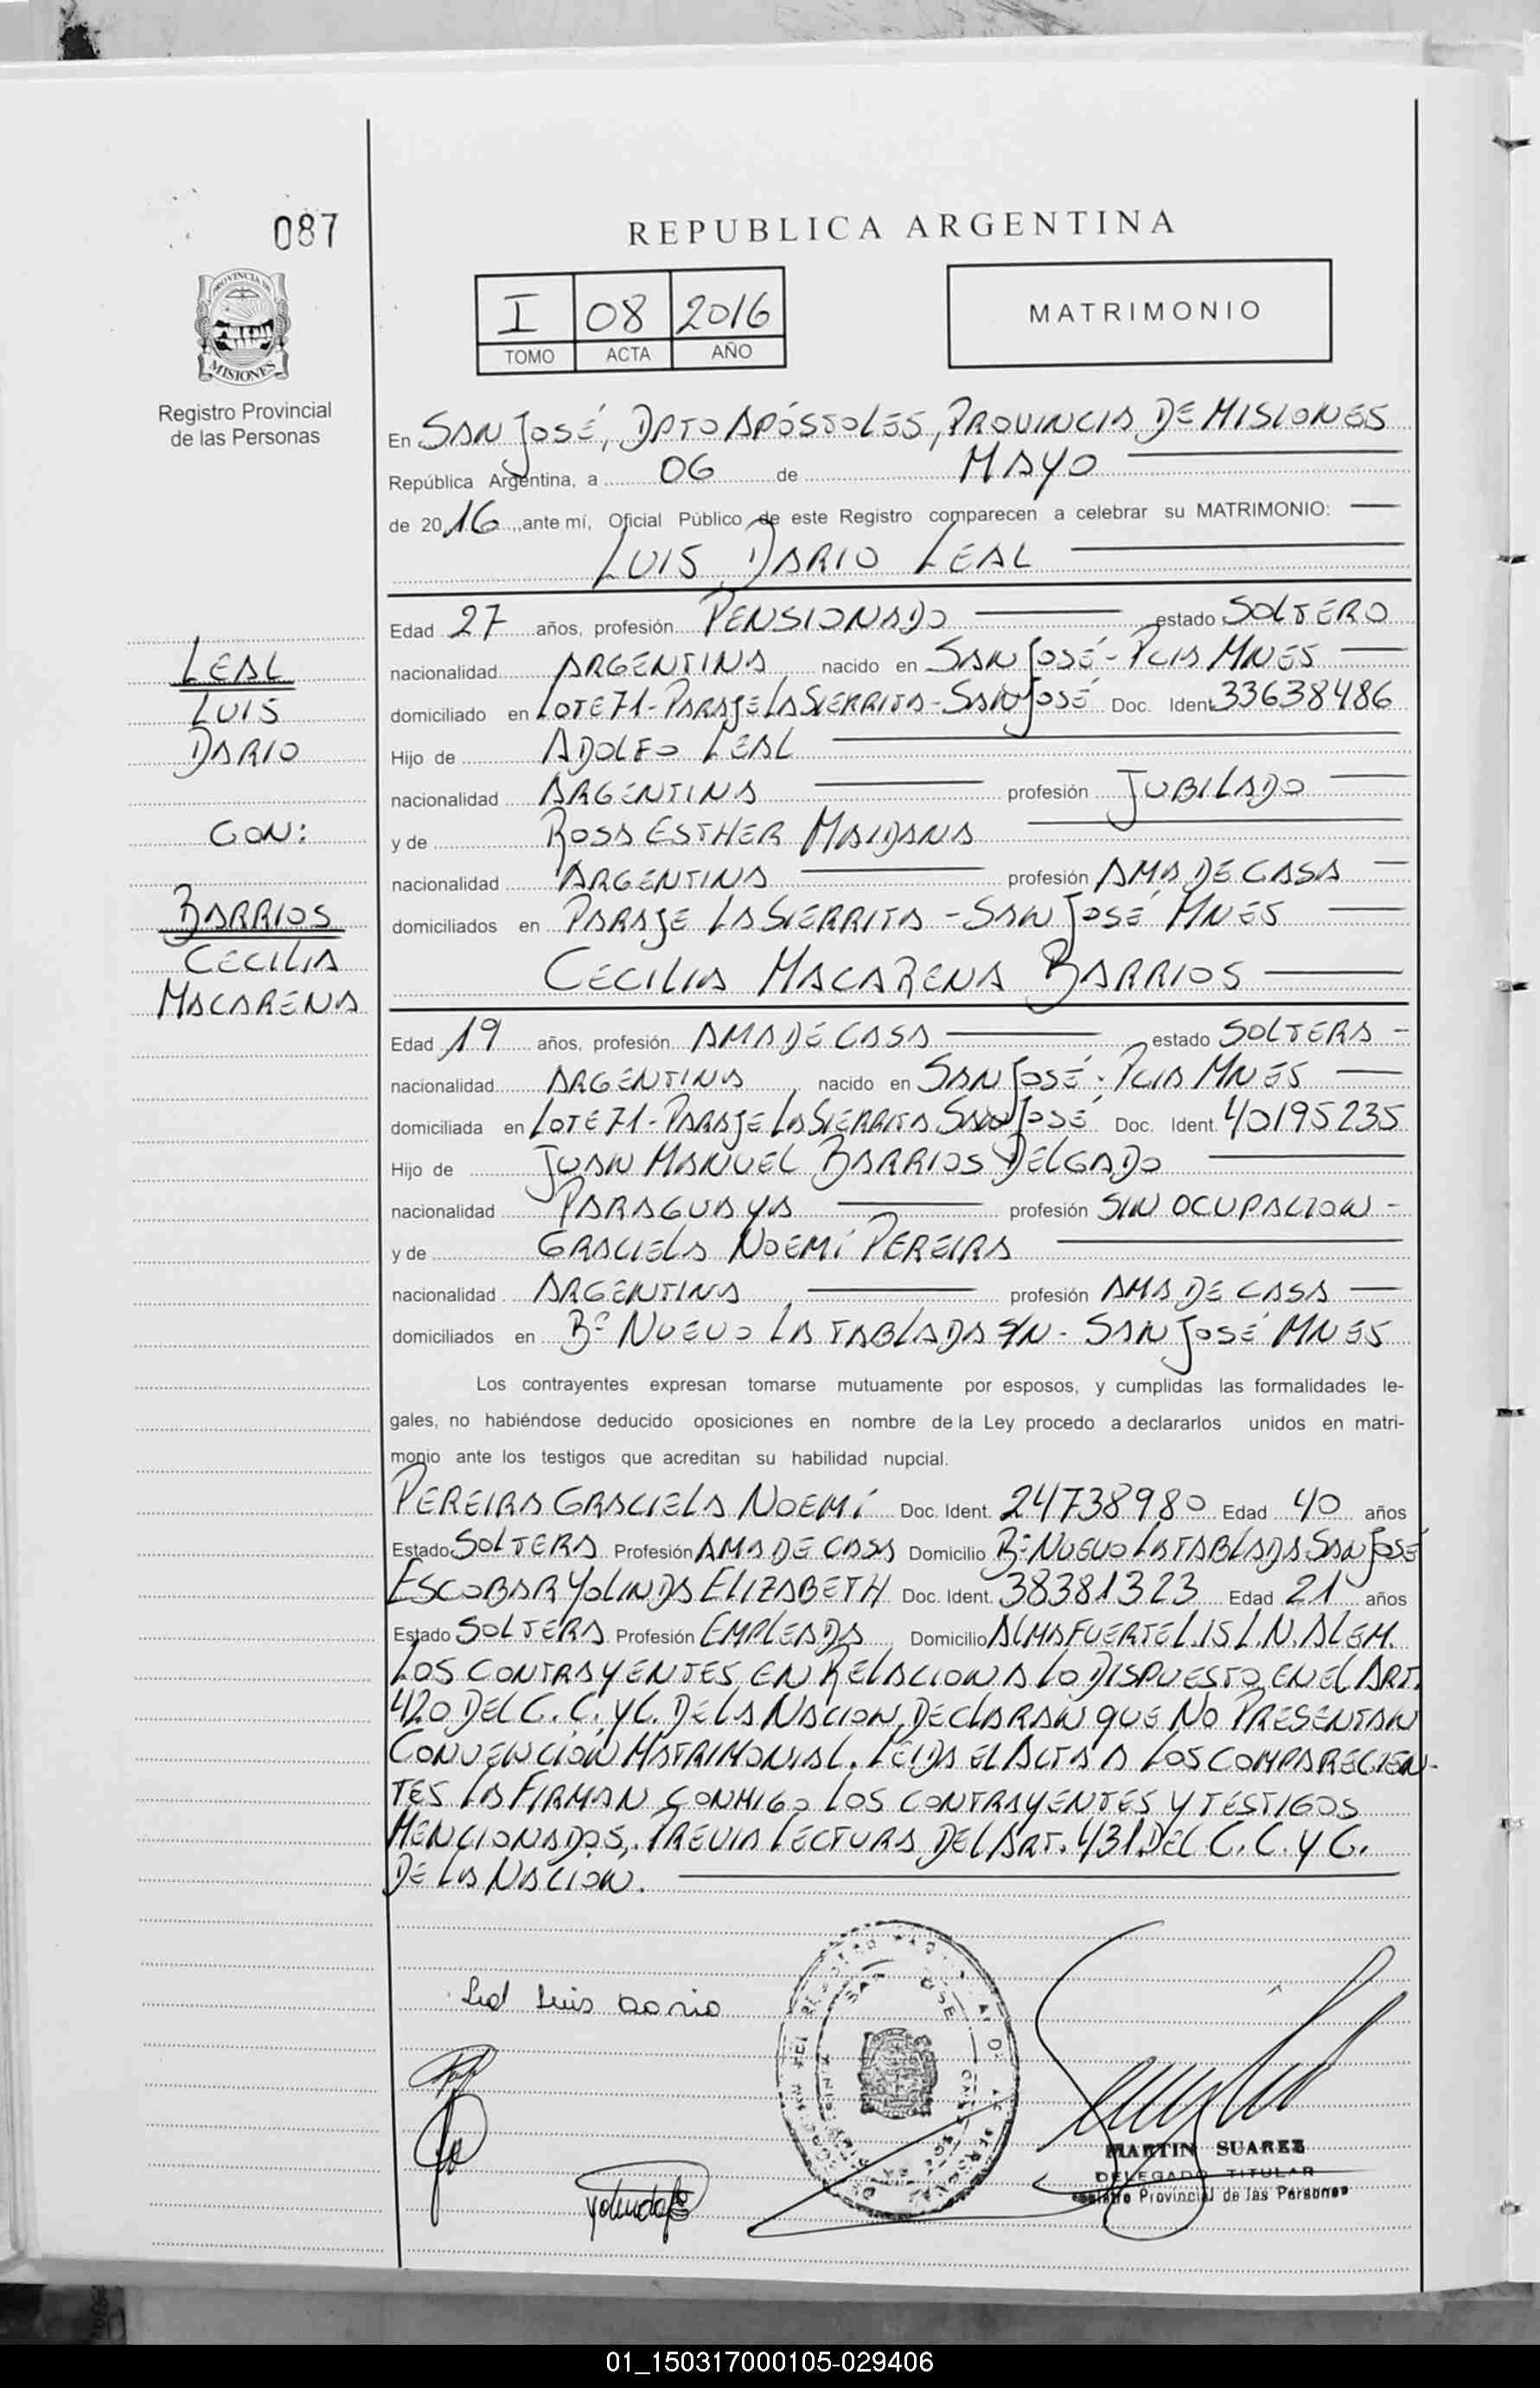 087
PROVINCIA DE
MISIONES
Registro Provincial
de las Personas
REPUBLICA ARGENTINA
I 08 2016
TOMO ACTA AÑO
MATRIMONIO
En SAN JOSÉ, DPTO APÓSTOLES, PROVINCIA DE MISIONES
República Argentina, a 06 de MAYO
de 2016, ante mí, Oficial Público de este Registro comparecen a celebrar su MATRIMONIO:
LUIS DARIO LEAL
Edad 27 años, profesión PENSIONADO estado SOLTERO
nacionalidad ARGENTINA nacido en SAN JOSÉ - PCIA MNES
domiciliado en LOTE 71 - PARAJE LA SIERRITA - SAN JOSÉ Doc. Ident. 33638486
Hijo de ADOLFO LEAL
nacionalidad ARGENTINA profesión JUBILADO
y de ROSA ESTHER MAIDANA
nacionalidad ARGENTINA profesión AMA DE CASA
domiciliados en PARAJE LA SIERRITA - SAN JOSÉ MNES
CECILIA MACARENA BARRIOS
LEAL
LUIS
DARIO
CON:
BARRIOS
CECILIA
MACARENA
Edad 19 años, profesión AMA DE CASA estado SOLTERA -
nacionalidad ARGENTINA nacido en SAN JOSÉ - PCIA MNES
domiciliada en LOTE 71 - PARAJE LA SIERRITA SAN JOSÉ Doc. Ident. 40195235
Hijo de JUAN MANUEL BARRIOS DELGADO
nacionalidad PARAGUAYA profesión SIN OCUPACION -
y de GRACIELA NOEMÍ PEREIRA
nacionalidad ARGENTINA profesión AMA DE CASA
domiciliados en Bº NUEVO LA TABLADA S/N - SAN JOSÉ MNES
Los contrayentes expresan tomarse mutuamente por esposos, y cumplidas las formalidades le-
gales, no habiéndose deducido oposiciones en nombre de la Ley procedo a declararlos unidos en matri-
monio ante los testigos que acreditan su habilidad nupcial.
PEREIRA GRACIELA NOEMÍ Doc. Ident. 24738980 Edad 40 años
Estado SOLTERA Profesión AMA DE CASA Domicilio Bº NUEVO LA TABLADA SAN JOSÉ
ESCOBAR YOLINDA ELIZABETH Doc. Ident. 38381323 Edad 21 años
Estado SOLTERA Profesión EMPLEADA Domicilio ALMAFUERTE L.15 L.N. ALEM.
LOS CONTRAYENTES EN RELACION A LO DISPUESTO EN EL ART.
420 DEL C. C. Y C. DE LA NACION, DECLARAN QUE NO PRESENTAN
CONVENCIÓN MATRIMONIAL. LEIDA EL ACTA A LOS COMPARECIEN-
TES LA FIRMAN CONMIGO LOS CONTRAYENTES Y TESTIGOS
MENCIONADOS, PREVIA LECTURA DEL ART. 431 DEL C. C. Y C.
DE LA NACION.
Leal Luis Dario
SAN JOSE
MARTIN SUAREZ
DELEGADO TITULAR
Registro Provincial de las Personas
01_150317000105-029406